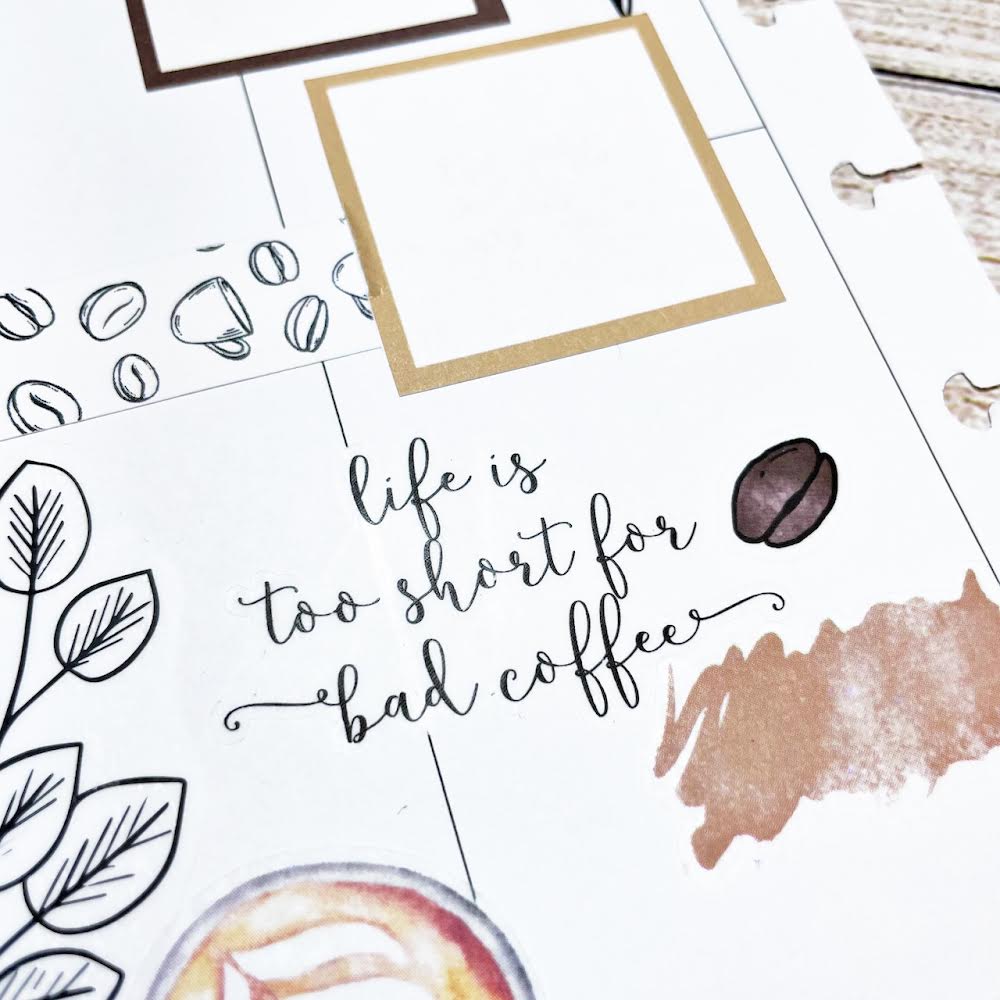 life is
too short for
bad coffee